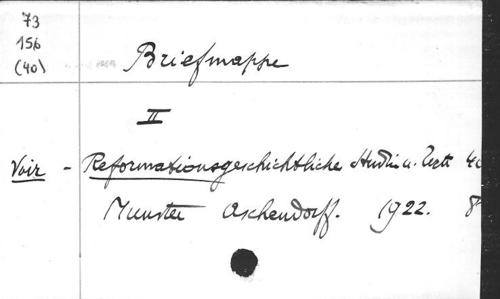 73
156
(40)
Briefmappe
II
Voir - Reformationsgeschichtliche Studien u. Texte 40
Munster Aschendorff. 1922. 8